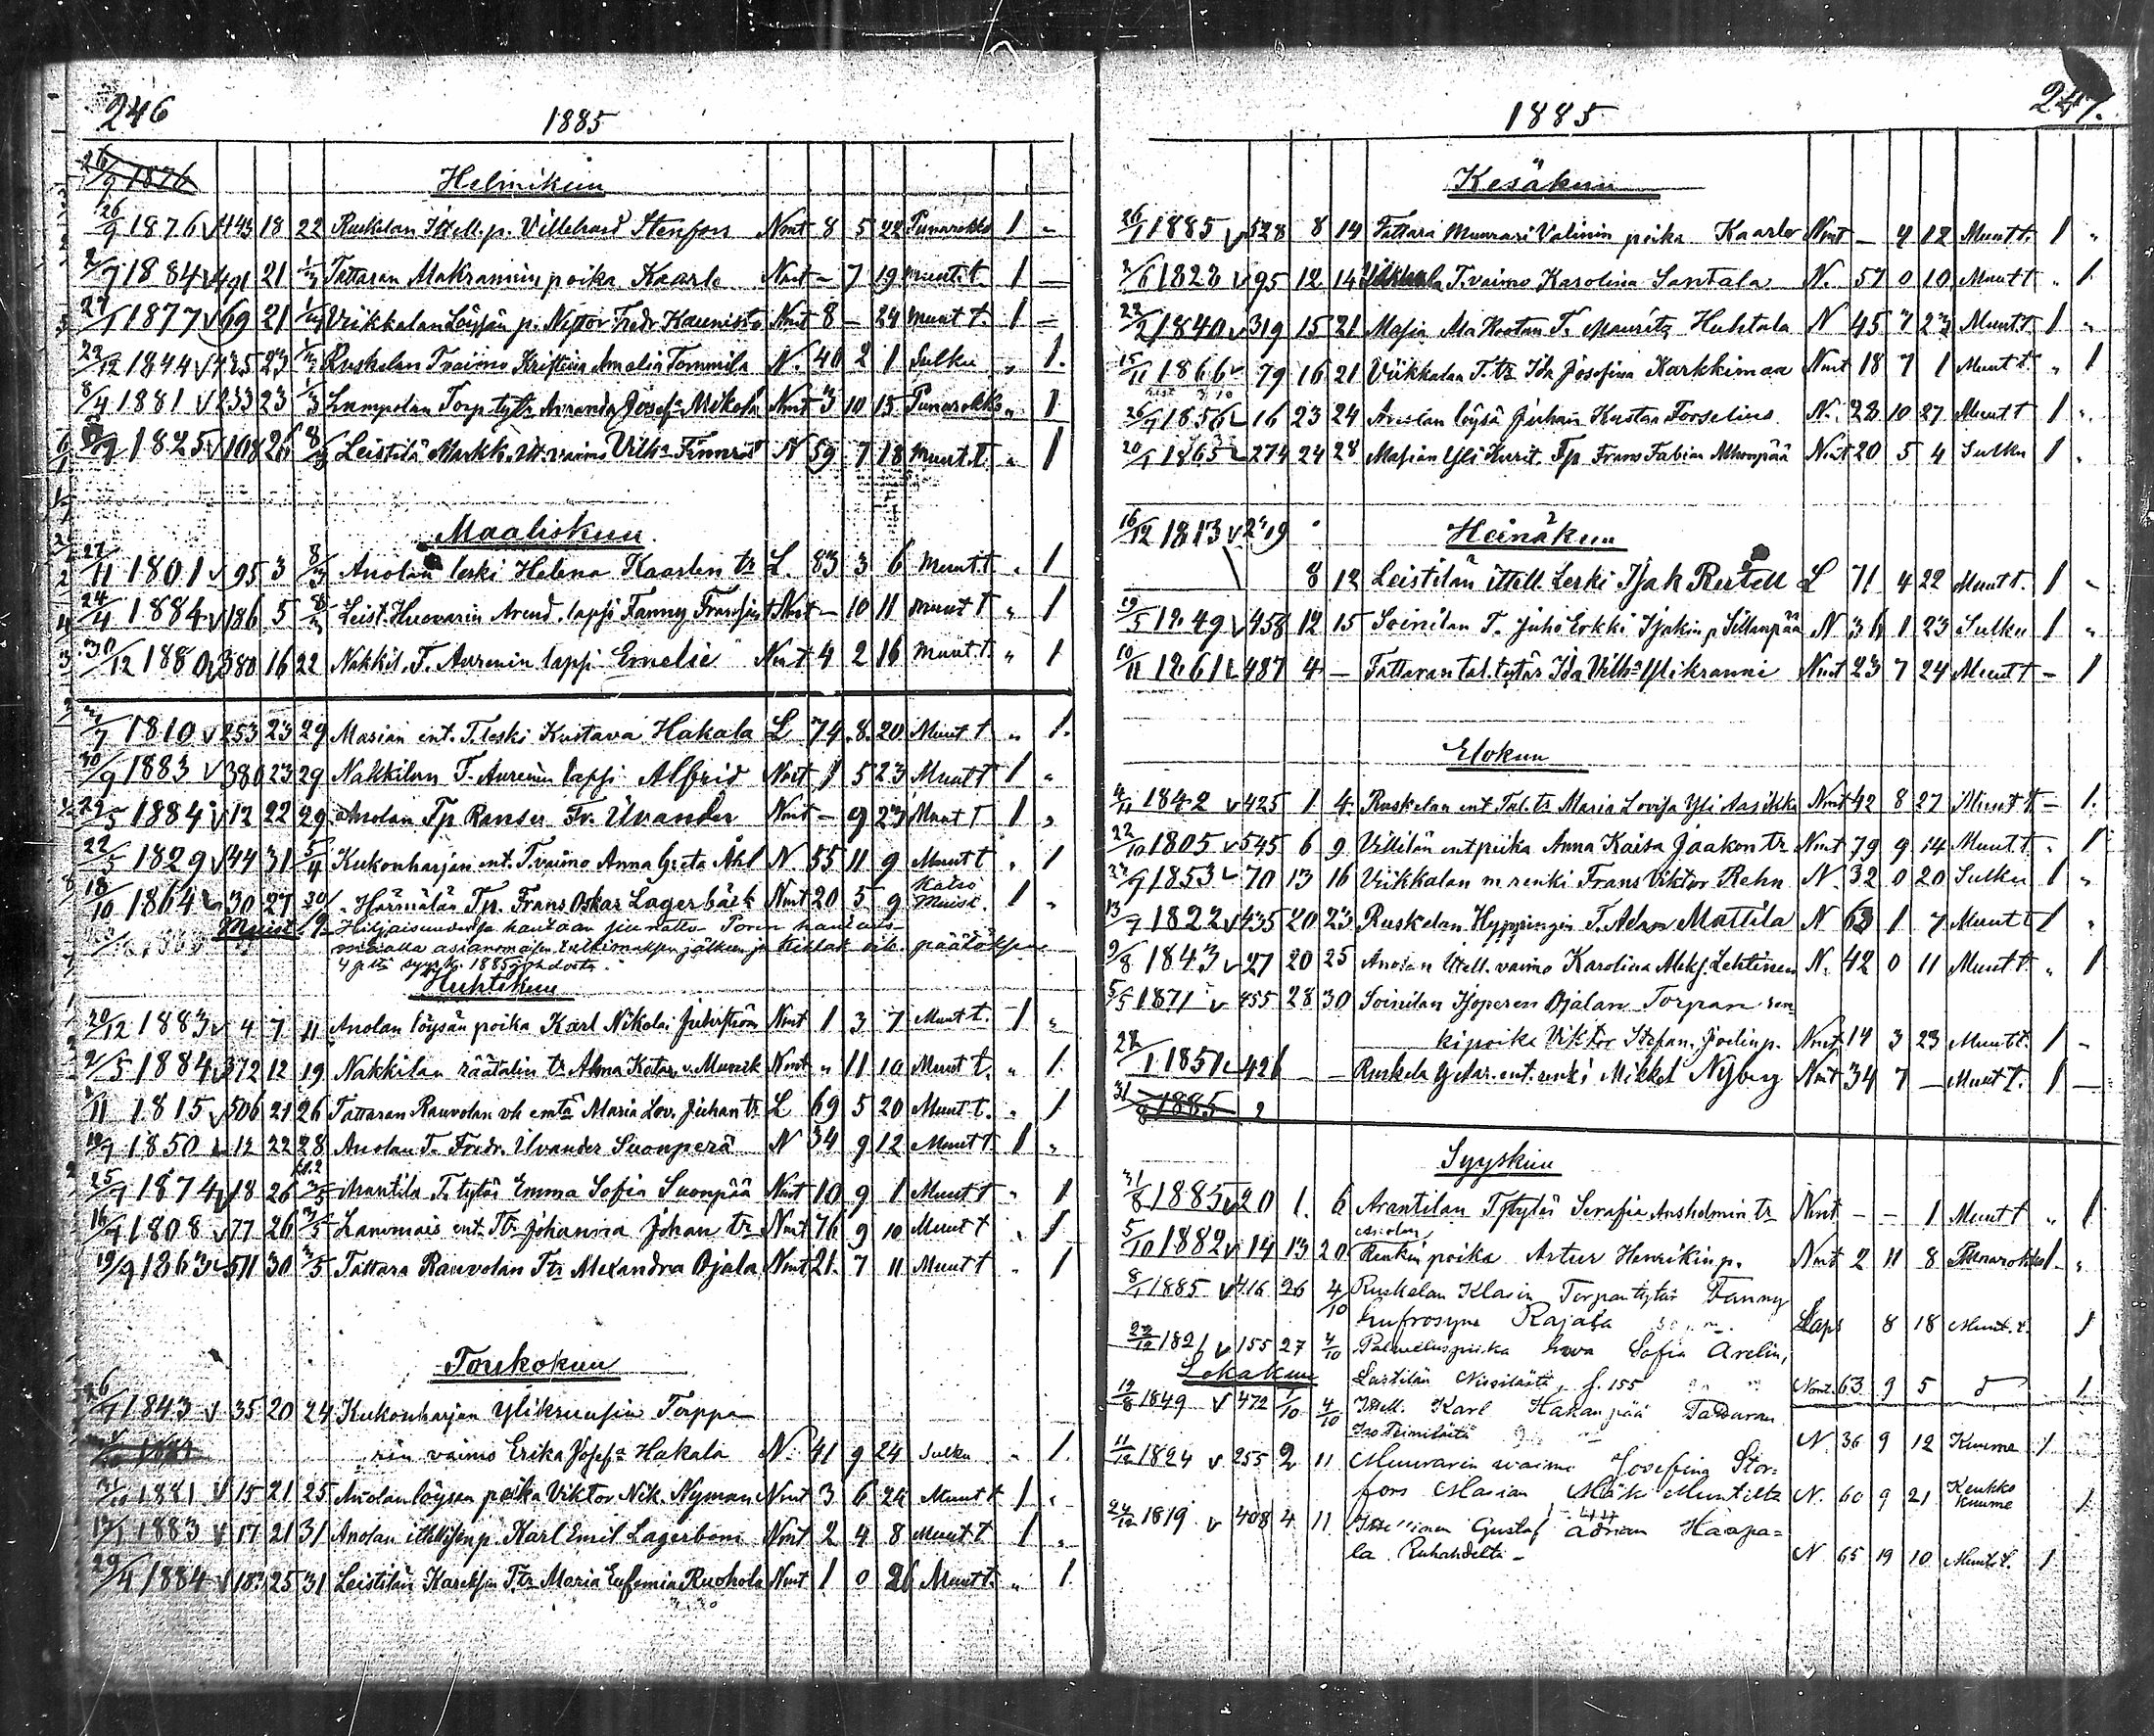 246
1885
26/9 1876
Helmikuu
26/9 1876 v 443 18 22 Ruskelan Itsell. p. Villehard Stenfors Nmt 8 5 22 Punarokko 1 "
2/7 1884 v 491 21 1/3 Tattaran Makrannin poika Kaarlo Nmt - 7 19 muut t. 1 -
27/1 1877 v 69 21 1/3 Viikkalan Löysän p. Nestor Fredr. Kaunisto Nmt 8 - 24 muut t. 1 -
22/12 1844 v 435 23 1/3 Ruskelan T. vaimo Kristiina Amalia Tommila N. 40 2 1 Sulku " 1.
8/4 1881 v 233 23 1/3 Lampolan Torp. tytr Amanda Josefa Mikola Nmt 3 10 15 Punarokko " 1
1825 v 108 26 8/3 Leistilä Markk. itt. vaimo Vilha Finnroos N 59 7 18 muut t. " 1
Maaliskuu
27/11 1801 v 95 3 8/3 Anolan leski Helena Kaarlen tr L. 83 3 6 Muut t " 1
24/4 1884 v 186 5 8/3 Leist. Huovarin Arend. lapsi Fanny Nmt - 10 11 muut t " 1
30/12 1880 v 380 16 22 Nakkil. T. Aurenin lapsi Emelie Nmt 4 2 16 muut t. " 1
1810 v 253 23 29 Masian ent. T. leski Kustava Hakala L 74 8 20 Muut t " 1.
30/9 1883 v 380 23 29 Nakkilan T. Aurenin lapsi Alfrid Nmt 1 5 23 Muut t 1 "
29/5 1884 v 12 22 29 Anolan Tp Ranses Fr. Uvander Nmt - 9 23 Muut t 1 "
22/5 1829 v 44 31 5/4 Kukonharjan ent. T. vaimo Anna Greta Ahl N. 55 11 9 Muut t " 1
18/10 1864 v 30 27 30/ Härmälän Tp. Frans Oskar Lagerbäck Nmt 20 5 9 Katso Muist. 1 "
Muist.
asianomaisen tutkimuksen jälkeen ja päätöksen
4 p:ltä syysk. 1885 johdosta.
Huhtikuu
20/12 1883 v 4 7 11 Anolan löysän poika Karl Nikolai Nmt 1 3 7 Muut t. 1 "
2/5 1884 v 372 12 19 Nakkilan räätälin tr Alma Nmt " 11 10 Muut t. " 1.
1/11 1815 v 506 21 26 Tattaran Rauvolan vh emtä Maria Lov. Juhan tr L 69 5 20 Muut t. " 1
1850 v 12 22 28 Anolan T. Fredr. Uvander Suonperä N 34 9 12 Muut t 1 "
25/7 1874 v 18 26 3/5 Arantila T. tytär Emma Sofia Suonpää Nmt 10 9 1 Muut t " 1
16/7 1808 v 77 26 3/5 Lammais ent. Ttr Johanna Johan tr Nmt 76 9 10 Muut t " 1
19/9 1863 v 511 30 3/5 Tattara Rauvolan Ttr Alexandra Ojala Nmt 21 7 11 Muut t " 1
Toukokuu
26/7 1843 v 35 20 24 Kukonharjan Ylikruusin Torppa-
rin vaimo Erika Josefa Hakala N. 41 9 24 Sulku " 1.
1881 v 15 21 25 Anolan löysän poika Viktor Nik. Nyman Nmt 3 6 24 Muut t 1 "
1883 v 17 21 31 Anolan itsellisen p. Karl Emil Lagerbom Nmt 2 4 8 Muut t. 1 "
29/4 1884 v 25 31 Leistilän Ttr Maria Eufemia Ruohola Nmt 1 0 26 Muut t. " 1
247.
1885
Kesäkuu
26/1 1885 v 528 8 14 Tattara Muurari Valinin poika Kaarlo Nmt - 4 12 Muut t. 1 "
2/6 1828 v 95 12 14 T. vaimo Karolina Santala N. 57 0 10 Muut t " 1
22/2 1840 v 319 15 21 Masia T. Mauritz Huhtala N 45 7 23 Muut t 1 "
15/11 1866 v 79 16 21 Viikkalan T. tr Ida Josefina Karkkimaa Nmt 18 7 1 Muut t. " 1
26/7 1856 v 16 23 24 Anolan löysä Juhan Kustaa Forselius N. 28 10 27 Muut t 1 "
20/1 1865 v 274 24 28 Masian Yli Kurit. Tp Frans Fabian Nmt 20 5 4 Sulku 1 "
16/12 1813 v 219
Heinäkuu
8 12 Leistilän ittell. Leski Isak Rostell L 71 4 22 Muut t. 1 "
19/5 1849 v 458 12 15 Soinilan T. Juho Erkki Isakin p Sillanpää N 36 1 23 Sulku 1 "
10/11 1861 v 487 4 - Tattaran tal. tytär Ida Vilha Ylikranni Nmt 23 7 24 Muut t - 1
Elokuu
4/11 1842 v 425 1 4. Ruskelan ent. Tal. tr Maria Lovisa Yli Nmt 42 8 27 Muut t - 1.
22/10 1805 v 545 6 9 Villilän ent piika Anna Kaisa Jaakon tr Nmt 79 9 14 Muut t. " 1
23/7 1853 v 70 13 16 Viikkalan m renki Frans Viktor Rehn N. 32 0 20 Sulku 1 "
13/7 1822 v 435 20 23 Ruskelan Hyppingin T. Adam Mattila N 63 1 7 Muut t 1 "
9/8 1843 v 27 20 25 Anolan Itsell. vaimo Karolina Aleks. Lehtinen N. 42 0 11 Muut t. " 1
5/5 1871 v 455 28 30 Soinilan Ojalan Torpan ren-
kipoika Viktor Stefan Joelin p. Nmt 14 3 23 Muut t. 1 -
28/1 1851 v 426 - - Ruskela ent. renki Mikkel Nyberg Nmt 34 7 - Muut t. 1 -
31/8 1885 2
Syyskuu
31/8 1885 v 20 1. 6 Arantilan T. tytär Serafia Anshelmin tr Nmt - - 1 Muut t " 1
Anolan
5/10 1882 v 14 13 20 Renkin poika Artur Henrikin p. Nmt 2 11 8 Punarokko 1 "
8/1 1885 v 416 26 4/10 Ruskelan Klasin Torpan tytär Fanny
Eufrosyne Rajala Laps 8 18 Muut. t. 1
22/12 1821 v 155 27 4/10 Palveluspiika Eeva Sofia Arelin,
Leistilän Nissilästä, f. 155 Nmt. 63 9 5 d 1
Lokakuu
19/8 1849 v 472 1/10 4/10 Itsell. Karl Hakanpää Tattaran
N. 36 9 12 Kuume 1
11/12 1824 v 255 2 11 Muurarin waimo Josefina Stor=
fors Masian N. 60 9 21 Keuhko kuume 1
24/12 1819 v 408 4 11 Itsellinen Gustaf Adrian Haapa=
la Ruhahdelta. N 65 19 10 Muut. t. 1